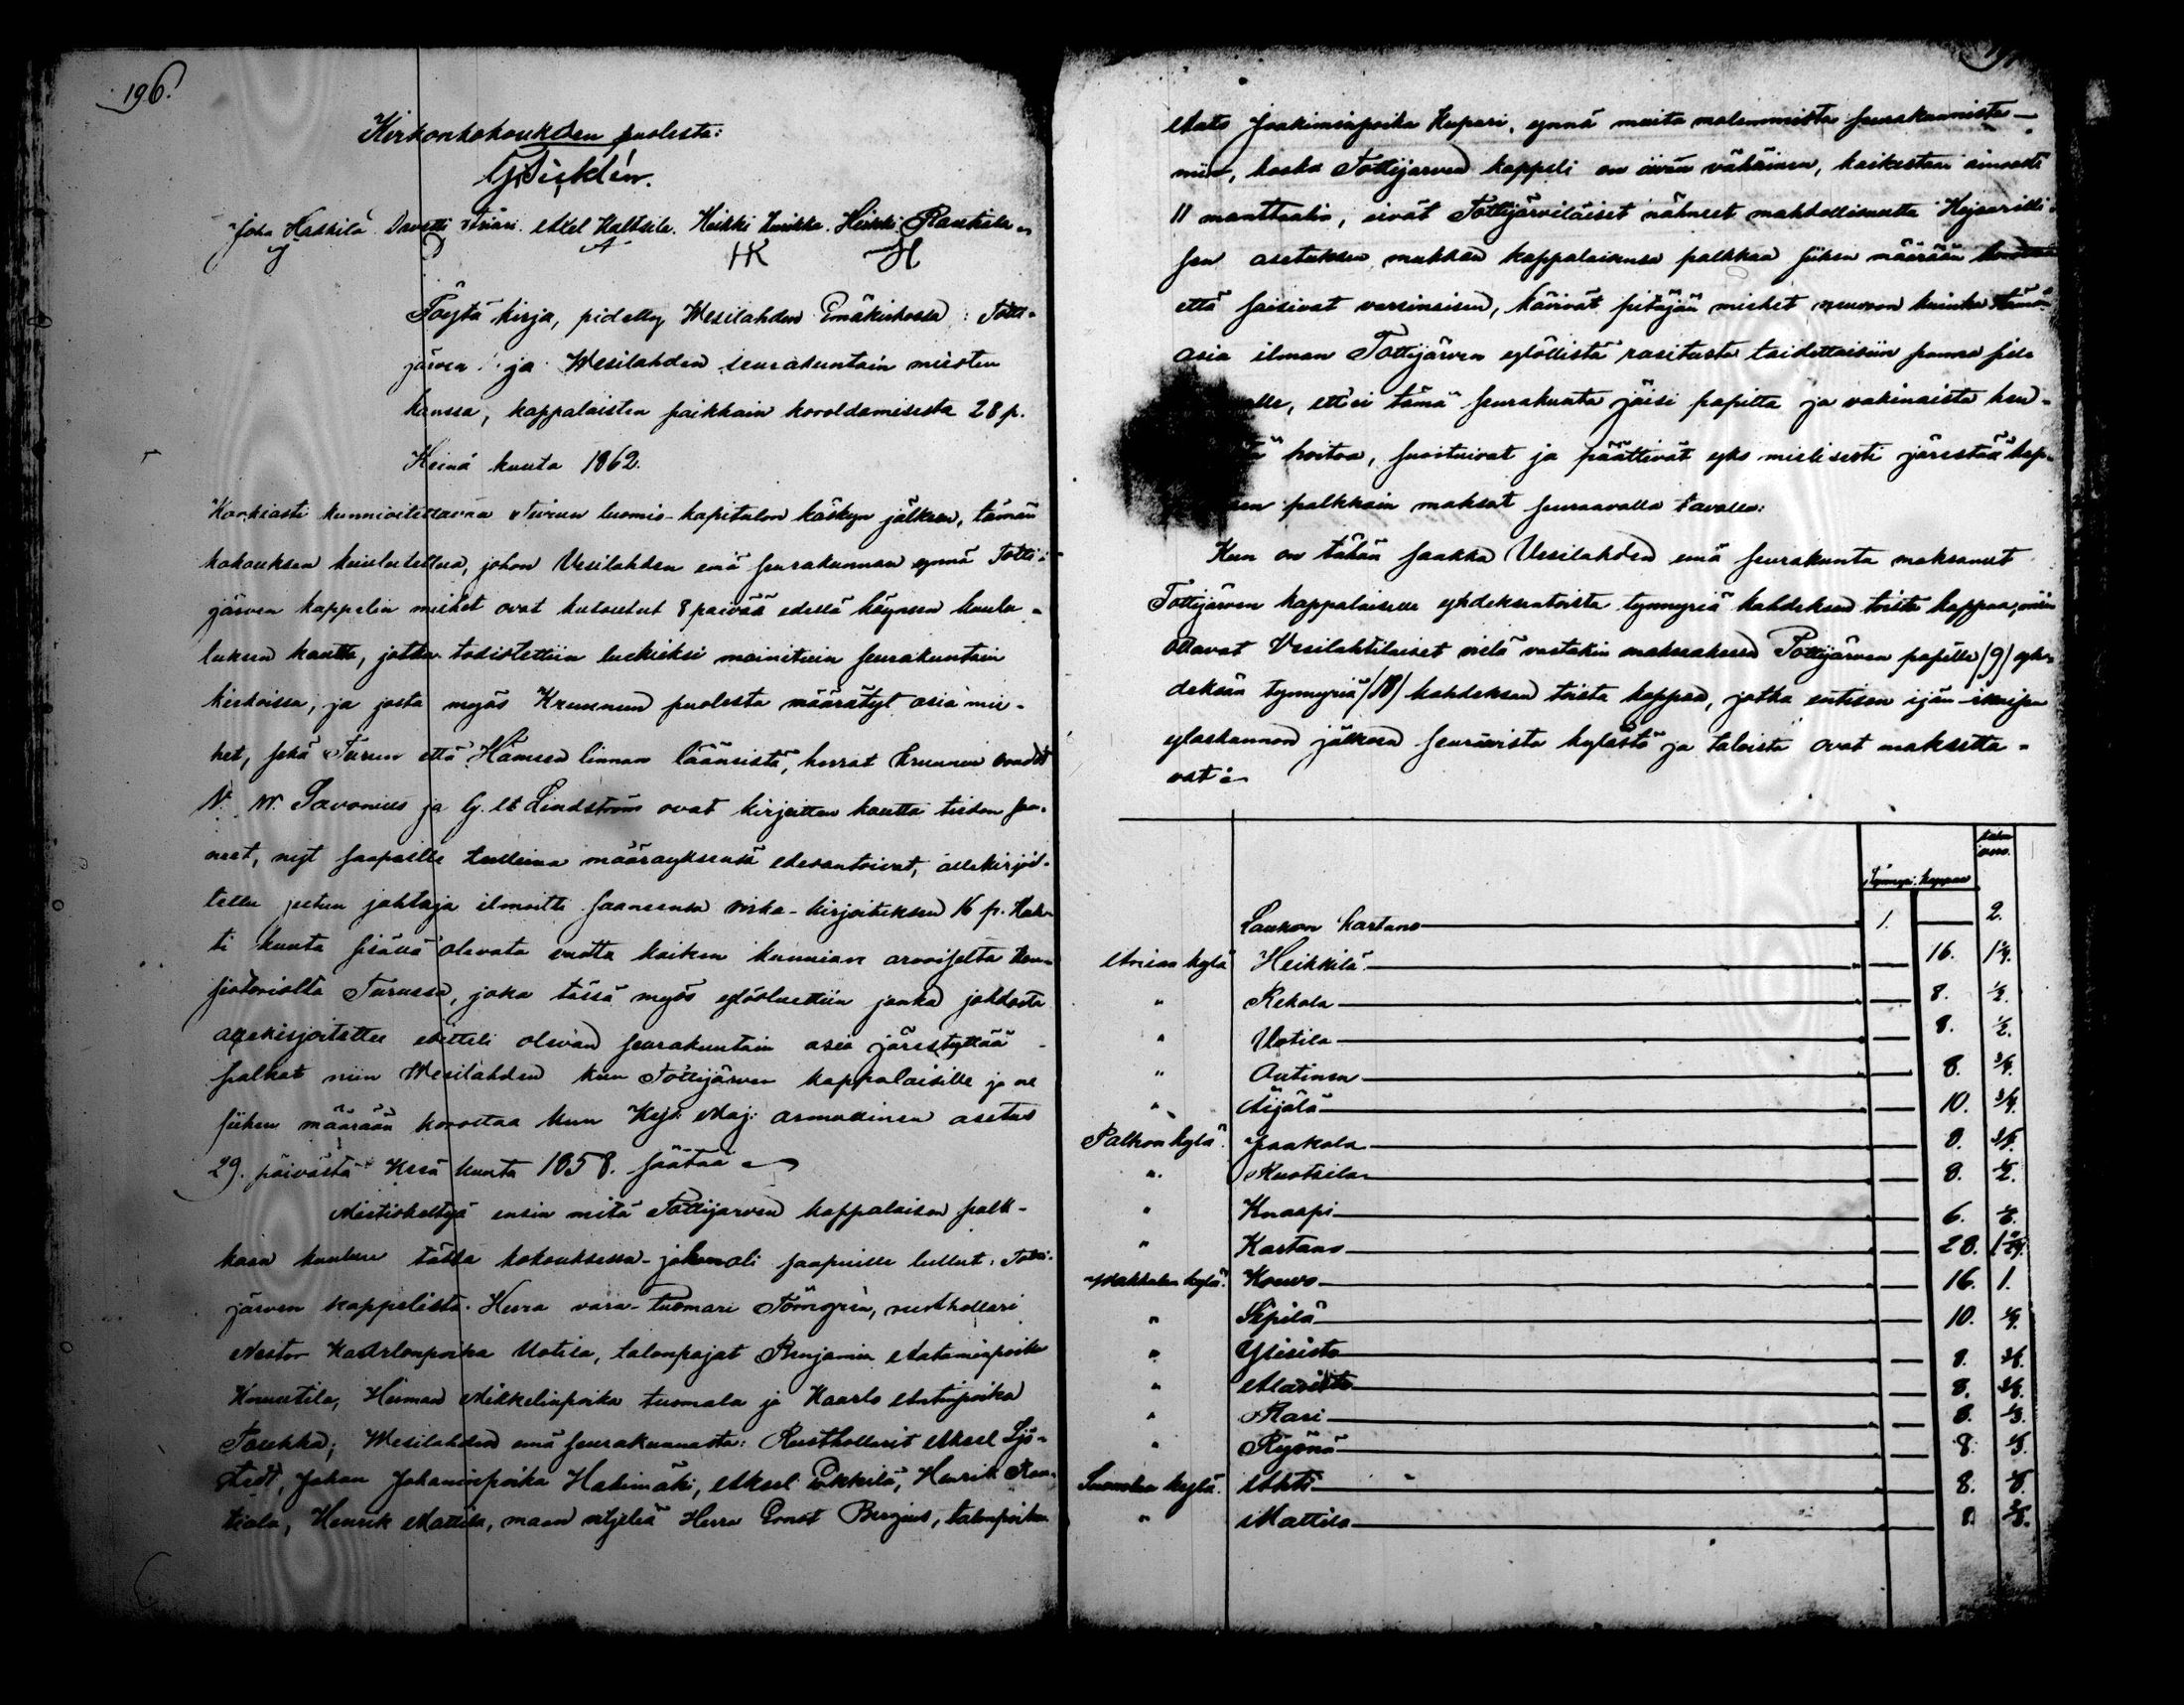 196.
Kirkonkokouksen puolesta:
Juha Haskila Davetti Aniari. Abel Halkila. Heikki Kuikka. Heikki Rautiala.
J D A HK H
Pöytä kirja, pidetty Wesilahden Emäkirkossa: Totti-
järven ja Wesilahden seurakuntain miesten
kanssa, kappalaisten paikkain koroldamisesta 28 p.
Heinä kuuta 1862.
Korkiasti kunnioitettavan Turun tuomio-kapitulon käskyn jälkeen, tämän
kokouksen kuulutettua, johon Vesilahden emä seurakunnan ynnä Totti-
järven kappelin miehet ovat kutsutut 8 päivää edellä käyneen kuulu-
tuksen kautta, jotka todistettiin luetuiksi mainituin seurakuntain
kirkoissa, ja josta myös Kruunun puolesta määrätyt asia mie-
het, sekä Turun että Hämeen linnan läänistä, herrat kruunun voudit
N. W. Savonius ja G. A. Lindström ovat kirjoitten kautta tiedon saa-
neet, nyt saapuille tulleina määräyksensä edesantoivat, allekirjoi-
tettu johtaja ilmoitti saaneensa virka-kirjoituksen 16 p. Huh-
ti kuuta sisällä olevata vuotta kaiken kunnian arvoiselta Kon-
sistoriolta Turussa, joka tässä myös ylösluettiin jonka johdosta
allekirjoitettu esitteli olevan seurakuntain asia järestyttää
palkat niin Wesilahden kun Tottijärven kappalaisille ja ne
siihen määrään korottaa kun Keis: Maj: armollinen asetus
29. päivästä Kesä kuuta 1858. säätää
Keskusteltya ensin mitä Tottijärven kappalaisen palk-
kaan kuuluu tässä kokouksessa johon oli saapuille tullut: Totti-
järven kappelista. Herra vara-tuomari Törngren, rusthollari
Nestor Kaarlonpoika Uotila, talonpojat Benjamin Aataminpoika
Kuuttila, Herman Mikkelinpoika tuomala ja Kaarlo Antinpoika
Paukka; Wesilahden emä seurakunnasta: Rusthollarit Aksel Sjö-
stedt, Johan Johaninpoika Hakimäki, Aksel Pikkilä, Henrik Rau-
tiala, Henrik Mattila, maan viljeliä Herra Ernst Bergius, talonpoika
Mats Joakiminpoika Kupari, ynnä muita molemmista seurakunnista —
niin, koska Tottijärven kappeli on aivan vähäinen, kaikestaan ainoasti
11 manttaalia, eivät Tottijärviläiset nähneet mahdollisuutta Keisarilli-
sen asetuksen mukkaan kappalaisensa palkkaa siihen määrään
että saisivat varsinaisen, kävivät pitäjän miehet neuvoon kuinka tämä
asia ilman Tottijärven ylöllistä rasitusta taidettaisiin panna sille
alle, ett'ei tämä seurakunta jäisi papitta ja vakinaista hen-
tä hoitoa, suostuivat ja päättivät yks mielisesti järestää kap-
sen palkkain maksot seuraavalla tavalla:
Kun on tähän saakka Vesilahden emä seurakunta maksanut
Tottijärven kappalaiselle yhdeksäntoista tynnyriä kahdeksan toista kappaa, niin
ottavat Vesilahtilaiset vielä vastakin maksaaksensa Tottijärven papille (9) yh-
deksän tynnyriä (18) kahdeksan toista kappaa, jotka entisen ijän-ikuisen
ylöskannon jälkeen seuraavista kylästä ja taloista ovat maksetta-
vat:
Tynnyri. Kappaa
Laukon kartano 1. — 2.
Anian kylä Heikkilä — 16. 1¼.
" Rekola — 8. ½.
" Uotila — 8. ½.
" Outinen — 8. ¾.
" Äijälä — 10. ¾.
Palhon kylä. Jaakola — 8.
" Kuotsila — 8. ½.
" Knaapi — 6.
" Kartano — 28.
Wakkalan kylä. Kouvo — 16. 1.
" Sipilä — 10.
" Ylisisto — 8.
" Alasisto — 8.
" Rasi — 8. ⅓.
" Ryönä — 8.
Suomelan kylä. Ahti — 8.
" Mattila — 8.